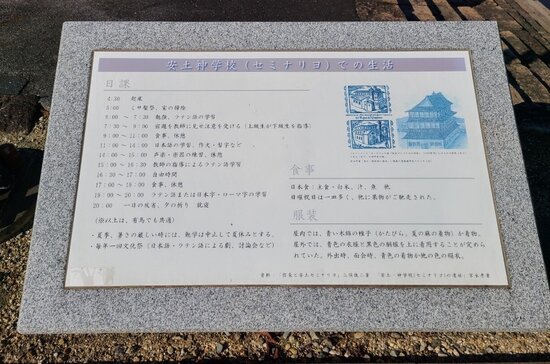 安土神学校（セミナリヨ）での生活
日課
4:30 起床
5:00 ミサ聖祭、室の掃除
6:00 ～ 7:30 勉強、ラテン語の学習
7:30 ～ 9:00 宿題を教師に見せ注意を受ける（上級生が下級生を指導）
9:00 ～ 11:00 食事、休憩
11:00 ～ 14:00 日本語の学習、作文・習字など
14:00 ～ 15:00 声楽・楽器の練習、休憩
15:00 ～ 16:30 教師の指導によるラテン語学習
16:30 ～ 17:00 自由時間
17:00 ～ 19:00 食事、休憩
19:00 ～ 20:00 ラテン語または日本字・ローマ字の学習
20:00 一日の反省、夕の祈り 就寝
（※以上は、有馬でも共通）
・夏季、暑さの厳しい時には、勉学は中止して夏休みとする。
・毎年一回文化祭（日本語・ラテン語による劇、討論会など）
食事
日本食：主食・白米、汁、魚 他
日曜祝日は一皿多く、他に果物がご馳走された。
服装
屋内では、青い木綿の帷子（かたびら、夏の麻の着物）か着物。
屋外では、青色の衣服と黒色の胴服を上に着用することが定めら
れていた。外出時、面会時、青色の着物か他の色の胴衣。
資料：「信長と安土セミナリヨ」三俣俊二著 「安土・神学校(セミナリヨ)の遺址」